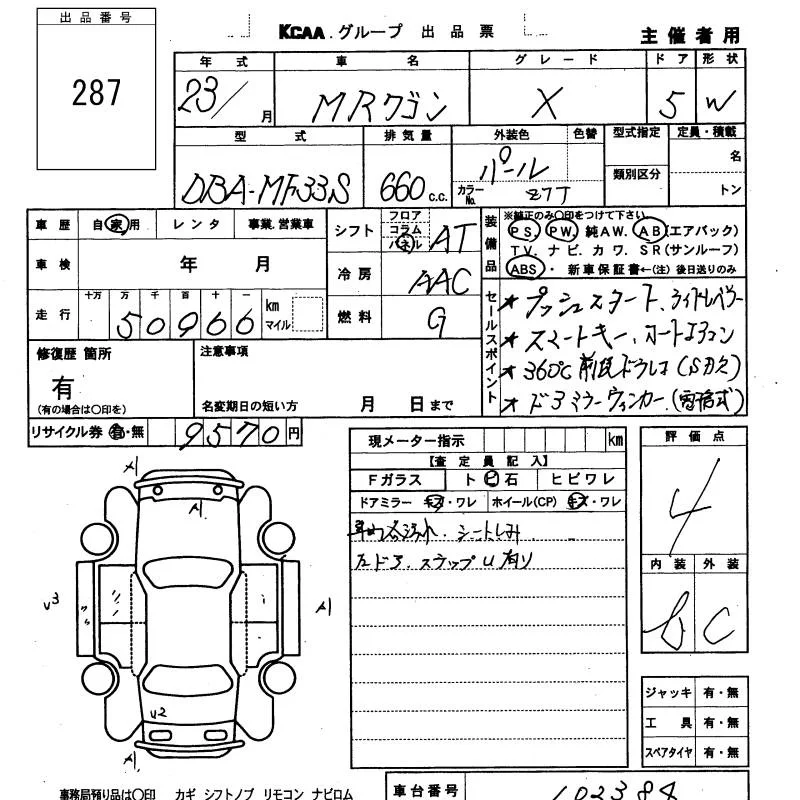 出品番号
287
KCAA グループ 出品票
主催者用
年式 車名 グレード ドア 形状
23/ 月 MRワゴン X 5 W
型式 排気量 外装色 色替 型式指定 定員・積載
DBA-MF33S 660 c.c. パール
カラーNo. Z7T
類別区分 名
トン
車歴 自家用 レンタ 事業.営業車
シフト フロア コラム パネル AT
装備品
※純正のみ〇印をつけて下さい。
PS. PW. 純AW. AB(エアバック)
TV. ナビ. カワ. SR(サンルーフ)
ABS・新車保証書←(注) 後日送りのみ
車検 年 月
冷房 AAC
走行 十万 万 千 百 十 一
50966 km マイル
燃料 G
セールスポイント
★プッシュスタート、ライトレベラー
★スマートキー、オートエアコン
★360℃
★ドアミラーウィンカー.(電格式)
修復歴 箇所
有
(有の場合は〇印を)
注意事項
名変期日の短い方 月 日まで
リサイクル券 有・無 9570 円
現メーター指示 km
【査定員記入】
Fガラス ト ビ 石 ヒビワレ
ドアミラー キズ・ワレ ホイール(CP) キズ・ワレ
シートしみ
左ドア. スラップU有り
評価点
4
内装 外装
b C
A1
A1
v3
A1
v2
A1
ジャッキ 有・無
工具 有・無
スペアタイヤ 有・無
事務局預り品は〇印 カギ シフトノブ リモコン ナビロム
車台番号 102384